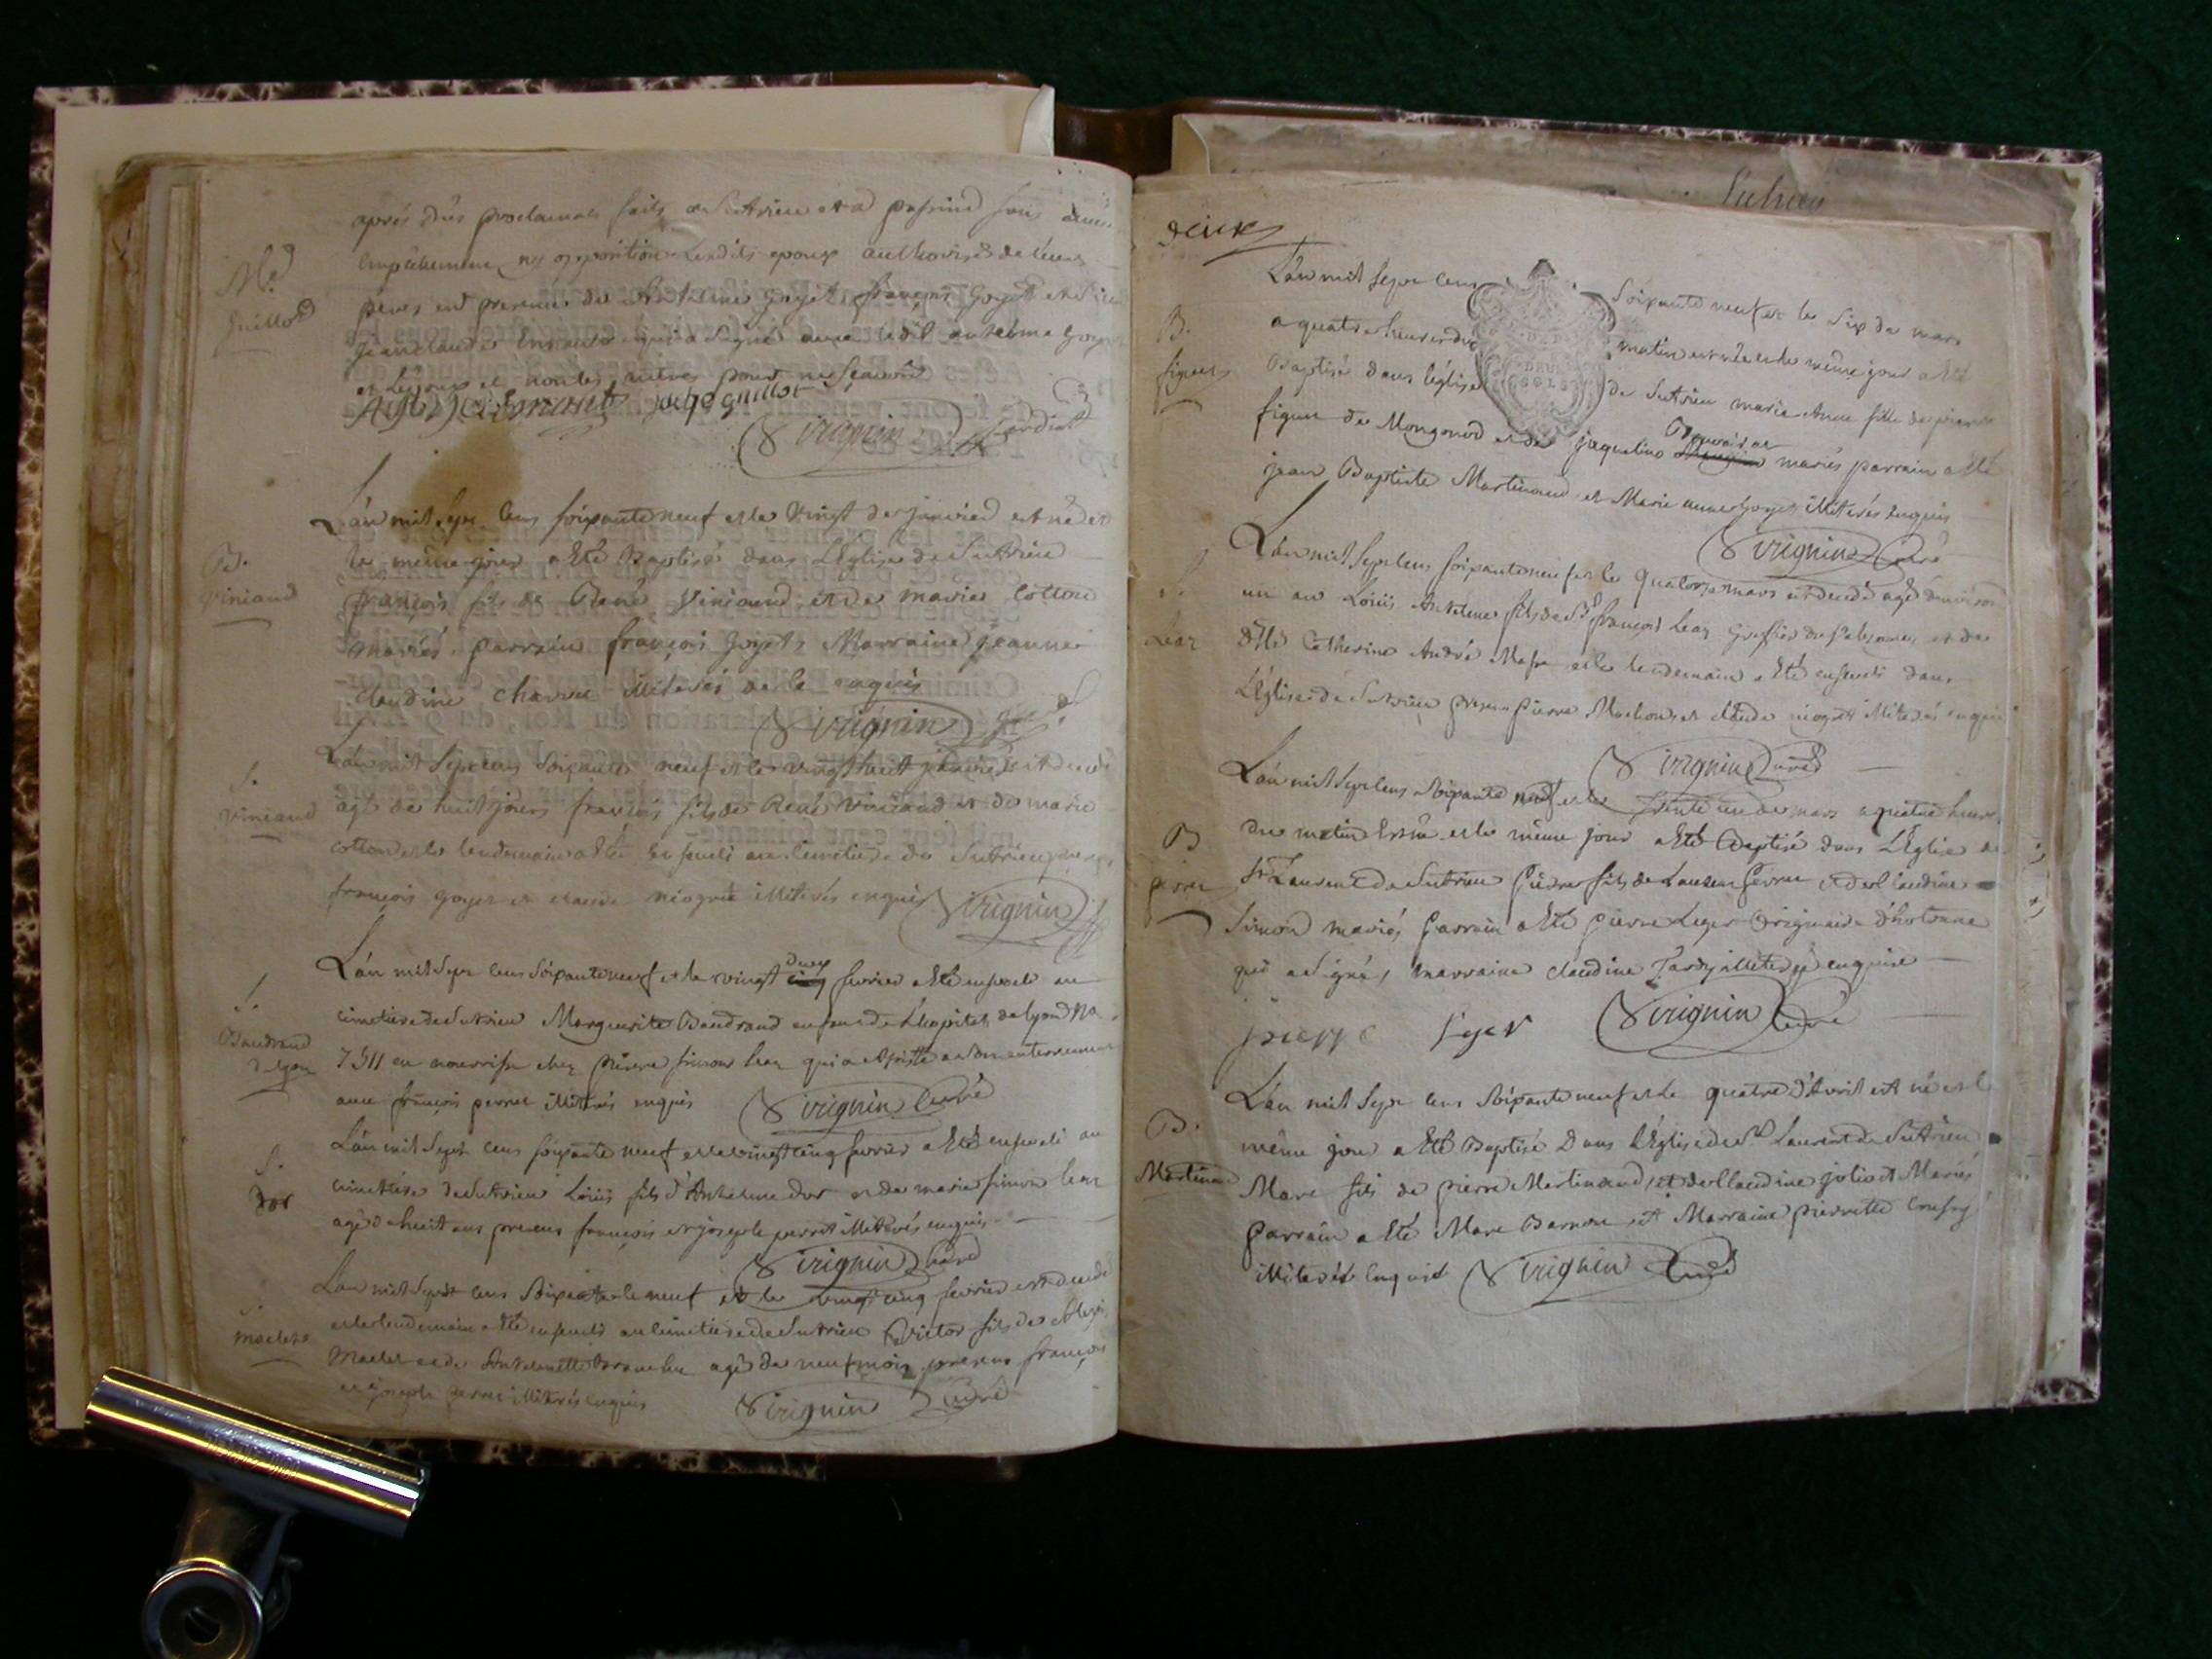 après dûs proclamat faits
empêchement ny opposition Lesdits epoux authorisés de leurs
Me.
Guillot
peres en presence de Anthelme goyet françois goyet
jean claude
et les autres pour ne sçavoir
guillot
Virignin
L'an mil sept cens soixante neuf et le vingt de janvier est né et
B.
viniand
le même jour a Eté Baptisé dans L'Eglise de Sutrieu
françois fils de René viniand et de marie cotton
mariés. parrain françois goyet Marraine jeanne
claudine charvu illiterés de le enquis
Virignin
L'an mil sept cens soixante neuf et le vingt huit janvier est decedé
S.
viniand
agé de huit jours françois fils de René viniand et de marie
cotton et le lendemain a Eté enseveli au cimetiere de Sutrieu
françois goyet et claude illiterés enquis Virignin
L'an mil sept cens soixante neuf et le vingt deux fevrier a Eté enseveli au
S.
Baudrand
de lyon
cimetiere de Sutrieu Marguerite Baudrand enfant de L'hopital de lyon No
7511 en nourrisse chez pierre simon lear qui a assisté a son enterrement
avec françois perret illiterés enquis Virignin Curé
L'an mil sept cens soixante neuf et le vingt cinq fevrier a Eté enseveli au
S.
dor
cimetiere de Sutrieu Loüis fils d'Anthelme dor et de marie simon lear
agé de huit ans presens françois et joseph perret illiterés enquis
Virignin Curé
L'an mil sept cens soixante neuf et le vingt cinq fevrier est decedé
S.
et le lendemain a Eté enseveli au cimetiere de Sutrieu victor fils de
et de Anthelmette agé de neuf mois presens françois
et joseph perret illiterés enquis
Virignin Curé
deux
L'an mil sept cens soixante neuf et le six de mars
B.
figuet
a quatre heures du matin est née et le même jour a Eté
Baptisé dans l'église de Sutrieu marie Anne fille de pierre
figuet de Mongonod et de jaqueline mariés parrain a Eté
jean Baptiste Martinand et Marie anne goyet illiterés enquis
Virignin Curé
L'an mil sept cens soixante neuf et le quatorze mars est decedé agé d'environ
S.
Lear
un an Loüis Anthelme fils de Sr françois lear greffier de et de
Dlle Catherine André Masse et le lendemain a Eté enseveli dans
L'Eglise de Sutrieu presens pierre Machon et claude illiterés enquis
Virignin Curé
L'an mil sept cens soixante neuf et le trente un de mars a quatre heures
B
perret
du matin Est né et le même jour a Eté Baptisé dans L'Eglise de
St Laurent de Sutrieu pierre fils de Laurent perret et de claudine
simon mariés parrain a Eté pierre Leger originaire d'hotonne
qui a signé, marraine claudine Tardy illiterée enquise
pierre leger Virignin Curé
L'an mil sept cens soixante neuf et le quatre d'Avril est né et le
B.
Martinand
même jour a Eté Baptisé Dans l'Eglise de St Laurent de Sutrieu
Marc fils de pierre Martinand, et de claudine joliet Mariés
parrain a Eté Marc et Marraine pierrette
illiterés enquis Virignin Curé